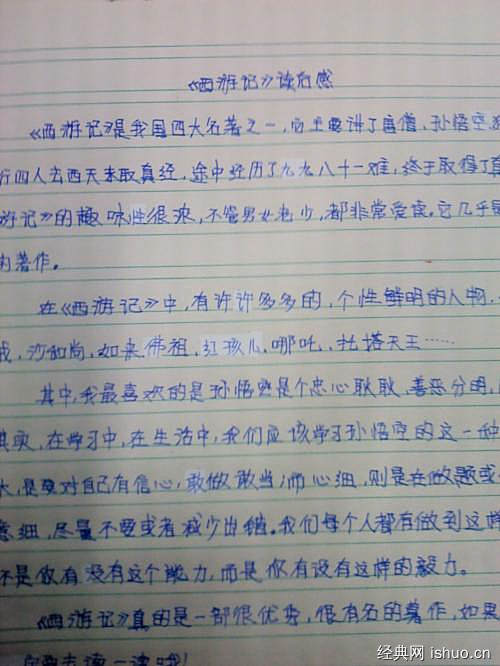 《西游记》读后感
《西游记》是我国四大名著之一，它主要讲了唐僧、孙悟空
行四人去西天求取真经，途中经历了九九八十一难，终于取得了
游记》的趣味性很浓，不管男女老少，都非常爱读。它几乎
的著作。
在《西游记》中，有许许多多的，个性鲜明的人物，
戒，沙和尚，如来佛祖，红孩儿，哪吒，托塔天王……
其中，我最喜欢的是孙悟空是个忠心耿耿、善恶分明，
其实，在学习中，在生活中，我们应该学习孙悟空的这一种
大，是要对自己有信心，敢做敢当；而心细，则是在做题或
意细，尽量不要或者减少出错。我们每个人都有做到这样
不是你有没有这个能力，而是你有没有这样的毅力。
《西游记》真的是一部很优秀，很有名的著作，如果
你要去读一读哦！
经典网 ishuo.cn